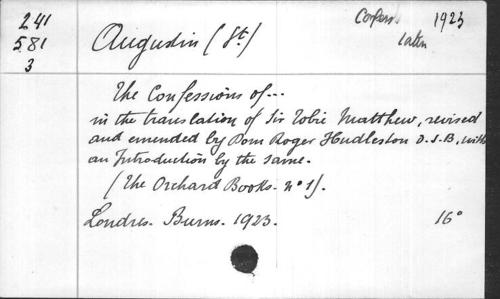 241 Confess. 1923
581 Augustin (St) latin
3
The Confessions of...
in the translation of Sir Tobie Matthew, revised
and emended by Dom Roger Hudleston O.S.B., with
an Introduction by the same.
(The Orchard Books. n° 1).
Londres. Burns. 1923. 16°